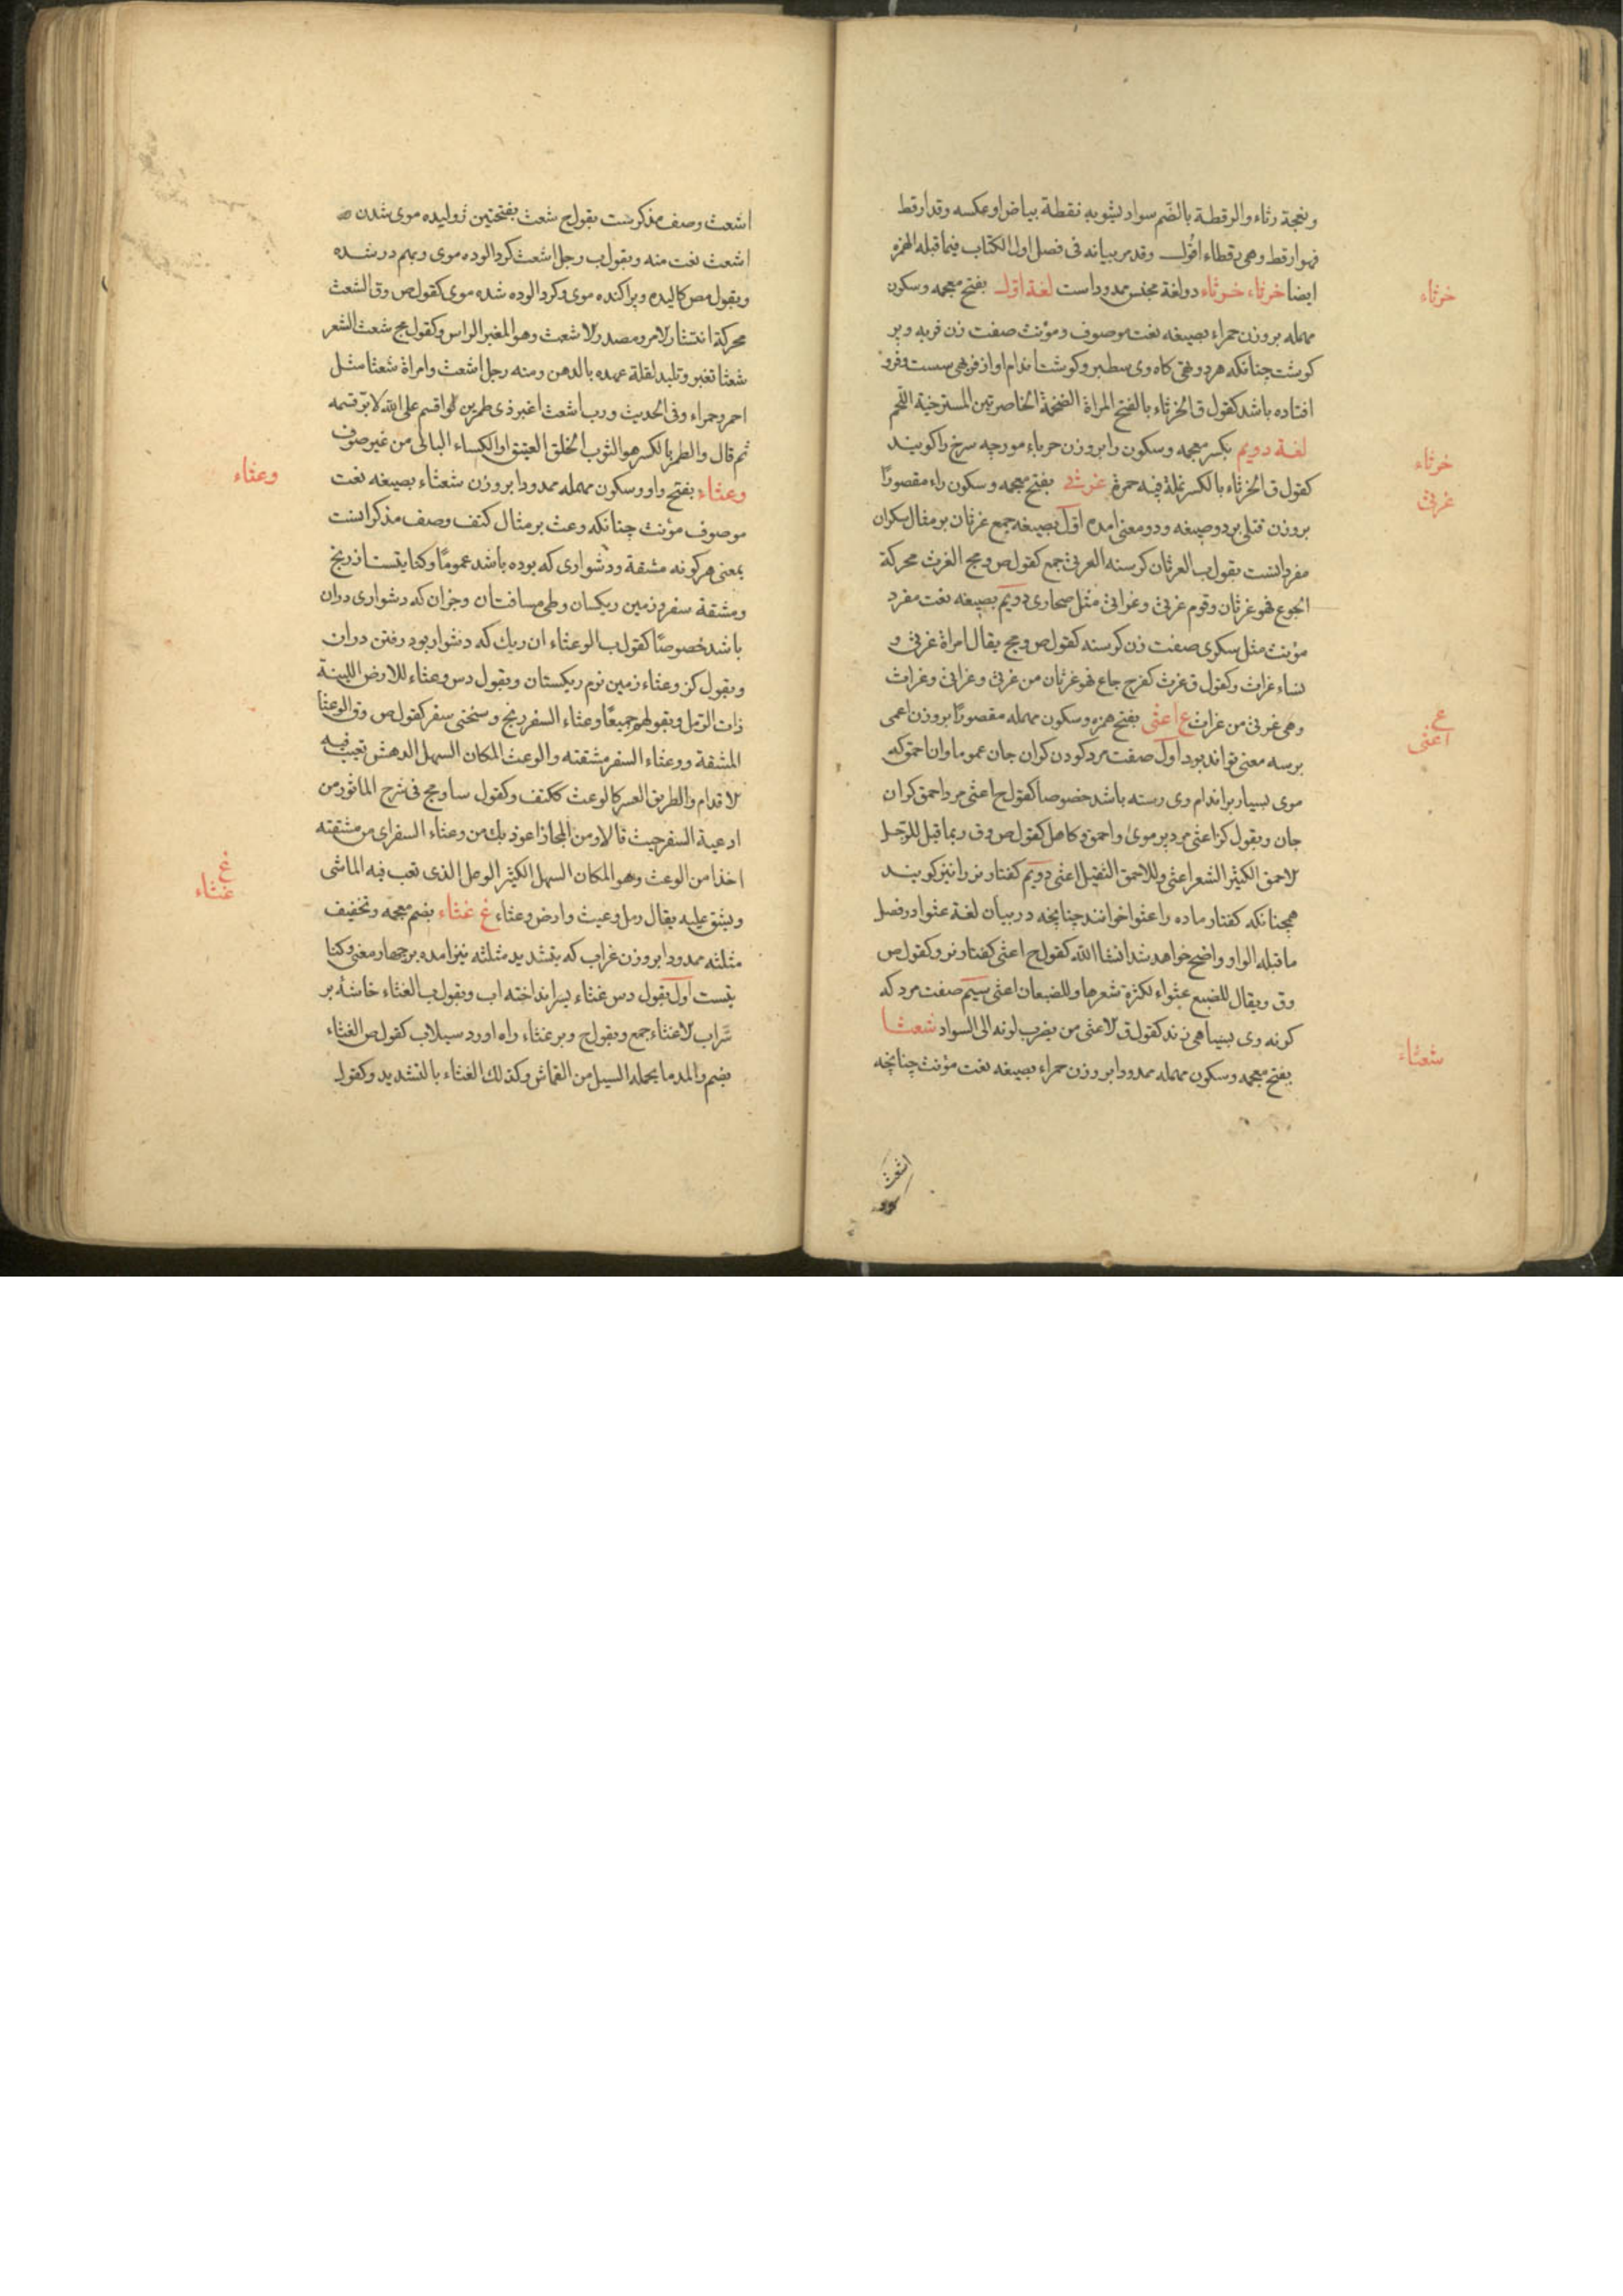 ونعجة رثاء والرقطة بالضم سواد يشوبه نقطة بياض او عكسه وقد ارقط
فهو ارقط وهی رقطاء اقول وقد مر بیانه فی فصل اول الکتاب فیما قبله الهمزه
ایضا خرثاء خرثاء دو لغة مجنس ممدود است لغة اول بفتح معجمه وسکون
مهمله بر وزن حمراء بصیغه نعت موصوف ومؤنث صفت زن فربه و پر
کوشت چنانکه هر دو تهی کاه وی سطبر وکوشت اندام او از فربهی سست وفرو
افتاده باشد کقول ق الخرثاء بالفتح المراة الضخمة الخاصرتین المسترخیة اللحم
لغة دویم بکسر معجمه وسکون را بر وزن حرباء مورچه سرخ را کویند
کقول ق الخرثاء بالکسر نملة فیه حمرة غرثی بفتح معجمه وسکون راء مقصورا
بر وزن قتلی بر دو صیغه ودو معنی امده اول بصیغه جمع غرثان بر مثال سکران
مفرد انست بقول ب الغرثان کرسنه الغرثی جمع کقول ص ومج الغرث محرکة
الجوع فهو غرثان وقوم غرثی وغراثی مثل صحاری دویم بصیغه نعت مفرد
مؤنث مثل سکری صفت زن کرسنه کقول ص ومج یقال امراة غرثی و
نساء غراث وکقول ق غرث کفرح جاع فهو غرثان من غرثی وغراثی وغراث
وهی غرثی من غراث ع اعثی بفتح همزه وسکون مهمله مقصورا بر وزن اعمی
بر سه معنی تواند بود اول صفت مرد کودن کران جان عموما وان احمق که
موی بسیار بر اندام وی رسته باشد خصوصا کقول ح اعثی مرد احمق کران
جان وبقول کز اعثی مرد پر موی واحمق وکاهل کقول ص وق ربما قیل للرجل
لاحمق الکثیر الشعر اعثی وللاحمق الثقیل اعثی دویم کفتار نر را نیز کویند
همچنانکه کفتار ماده را عثوا خوانند چنانچه در بیان لغة عثوا در فصل
ما قبله الواو واضح خواهد شد انشا الله کقول ح اعثی کفتار نر وکقول ص
وق ویقال للضبع عثواء لکثرة شعرها وللضبعان اعثی سیم صفت مرد که
کونه وی بسیاهی زند کقول ق لاعثی من یضرب لونه الی السواد شعثا
بفتح معجمه وسکون مهمله ممدودا بر وزن حمراء بصیغه نعت مؤنث چنانچه
اشعث
خرثاء
خرثاء
غرثی
ع
اعثی
شعثاء
اشعث وصف مذکرست بقول ح شعث بفتحتین ژولیده موی شدن
اشعث نعت منه وبقول ب رجل اشعث کرد الوده موی وبهم در شده
وبقول مص کالیده وپراکنده موی وکرد الوده شده موی کقول ص وق الشعث
محرکة انتشار لامر ومصدر لاشعث وهو المغبر الراس وکقول مج شعث الشعر
شعثا تغیر وتلبد لقلة عهده بالدهن ومنه رجل اشعث وامراة شعثا مثل
احمر وحمراء وفی الحدیث ورب اشعث اغبر ذی طمرین لو اقسم علی الله لابر قسمه
ثم قال والطمر بالکسر هو الثوب الخلق العتیق او الکساء البالی من غیر صوف
وعثاء بفتح واو وسکون مهمله ممدودا بر وزن شعثاء بصیغه نعت
موصوف مؤنث چنانکه وعث بر مثال کتف وصف مذکر انست
بمعنی هر کونه مشقة ودشواری که بوده باشد عموما وکنایتست از رنج
ومشقة سفر وزمین ریکسان وطی مسافت ان وجز ان که دشواری در ان
باشد خصوصا کقول ب الوعثاء ان ریک که دشوار بود رفتن در ان
وبقول کز وعثاء زمین نرم ریکستان وبقول دس وعثاء للارض اللینة
ذات الرمل وبقولهم جمیعا وعثاء السفر رنج وسختی سفر کقول ص وق الوعثا
المشقة ووعثاء السفر مشقته والوعث المکان السهل الدهش تغیب فیه
لاقدام والطریق العسر کالوعث ککتف وکقول سا ومج فی شرح الماثور من
ادعیة السفر حیث قالا ومن المجاز اعوذ بک من وعثاء السفر ای من مشقته
اخذا من الوعث وهو المکان السهل الکثیر الرمل الذی تعب فیه الماشی
ویشق علیه یقال رمل وعیث وارض وعثاء غ غثاء بضم معجمه وتخفیف
مثلثه ممدودا بر وزن غراب که بتشدید مثلثه نیز امده بر چهار معنی وکنا
یتست اول بقول دس غثاء بسر انداخته اب وبقول ب الغثاء خاشه بر
سراب لاغثاء جمع وبقول ح وبر غثاء راه اورد سیلاب کقول ص الغثاء
بضم والمد ما یحمله السیل من القماش وکذلک الغثاء بالتشدید وکقول
وعثاء
غ
غثاء